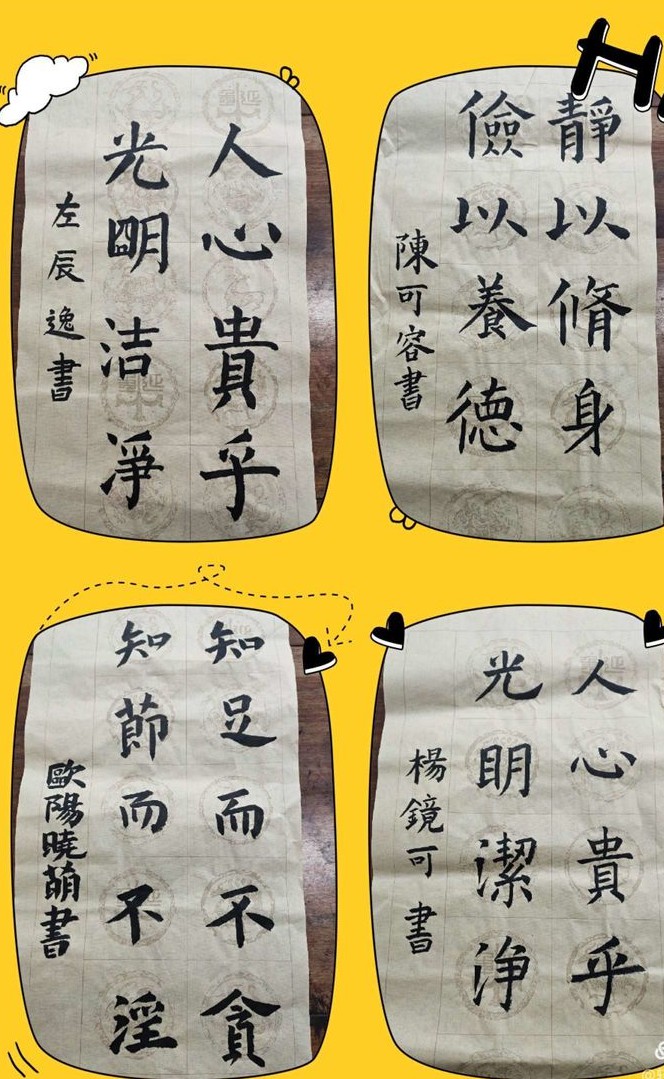 人心貴乎
光明洁淨
左辰逸書
靜以脩身
儉以養德
陳可容書
知足而不貪
知節而不淫
歐陽曉萌書
人心貴乎
光明潔淨
楊鏡可書